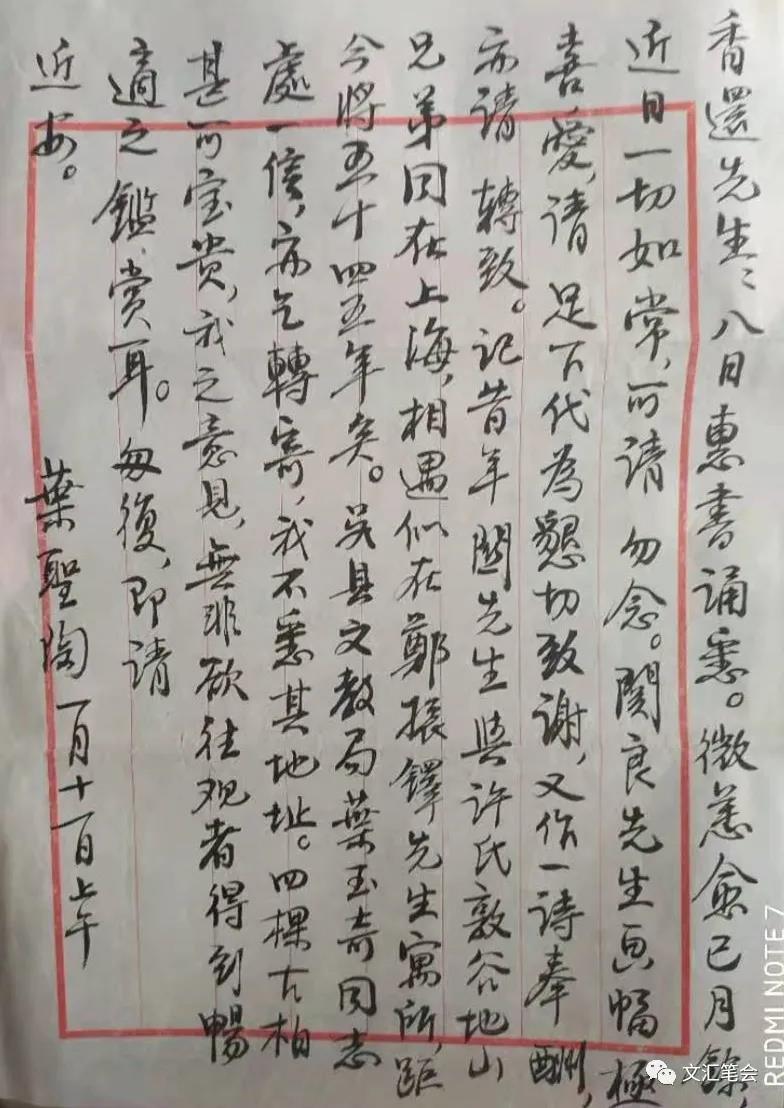 香還先生：八日惠書誦悉。微恙愈已月餘，
近日一切如常，可請 勿念。関良先生画幅極
喜愛，請 足下代為懇切致謝，又作一詩奉酬，
亦請 轉致。記昔年関先生與許氏敦谷地山
兄弟同在上海，相遇似在鄭振鐸先生寓所，距
今將五十四五年矣。吴县文教局葉玉奇同志
處一信，亦乞轉寄，我不悉其地址。四棵古柏
甚可宝贵，我之意見，無非欲往观者得到暢
適之鑑賞耳。匆復，即請
近安。
葉聖陶 一月十一日上午
文汇笔会
REDMI NOTE 7